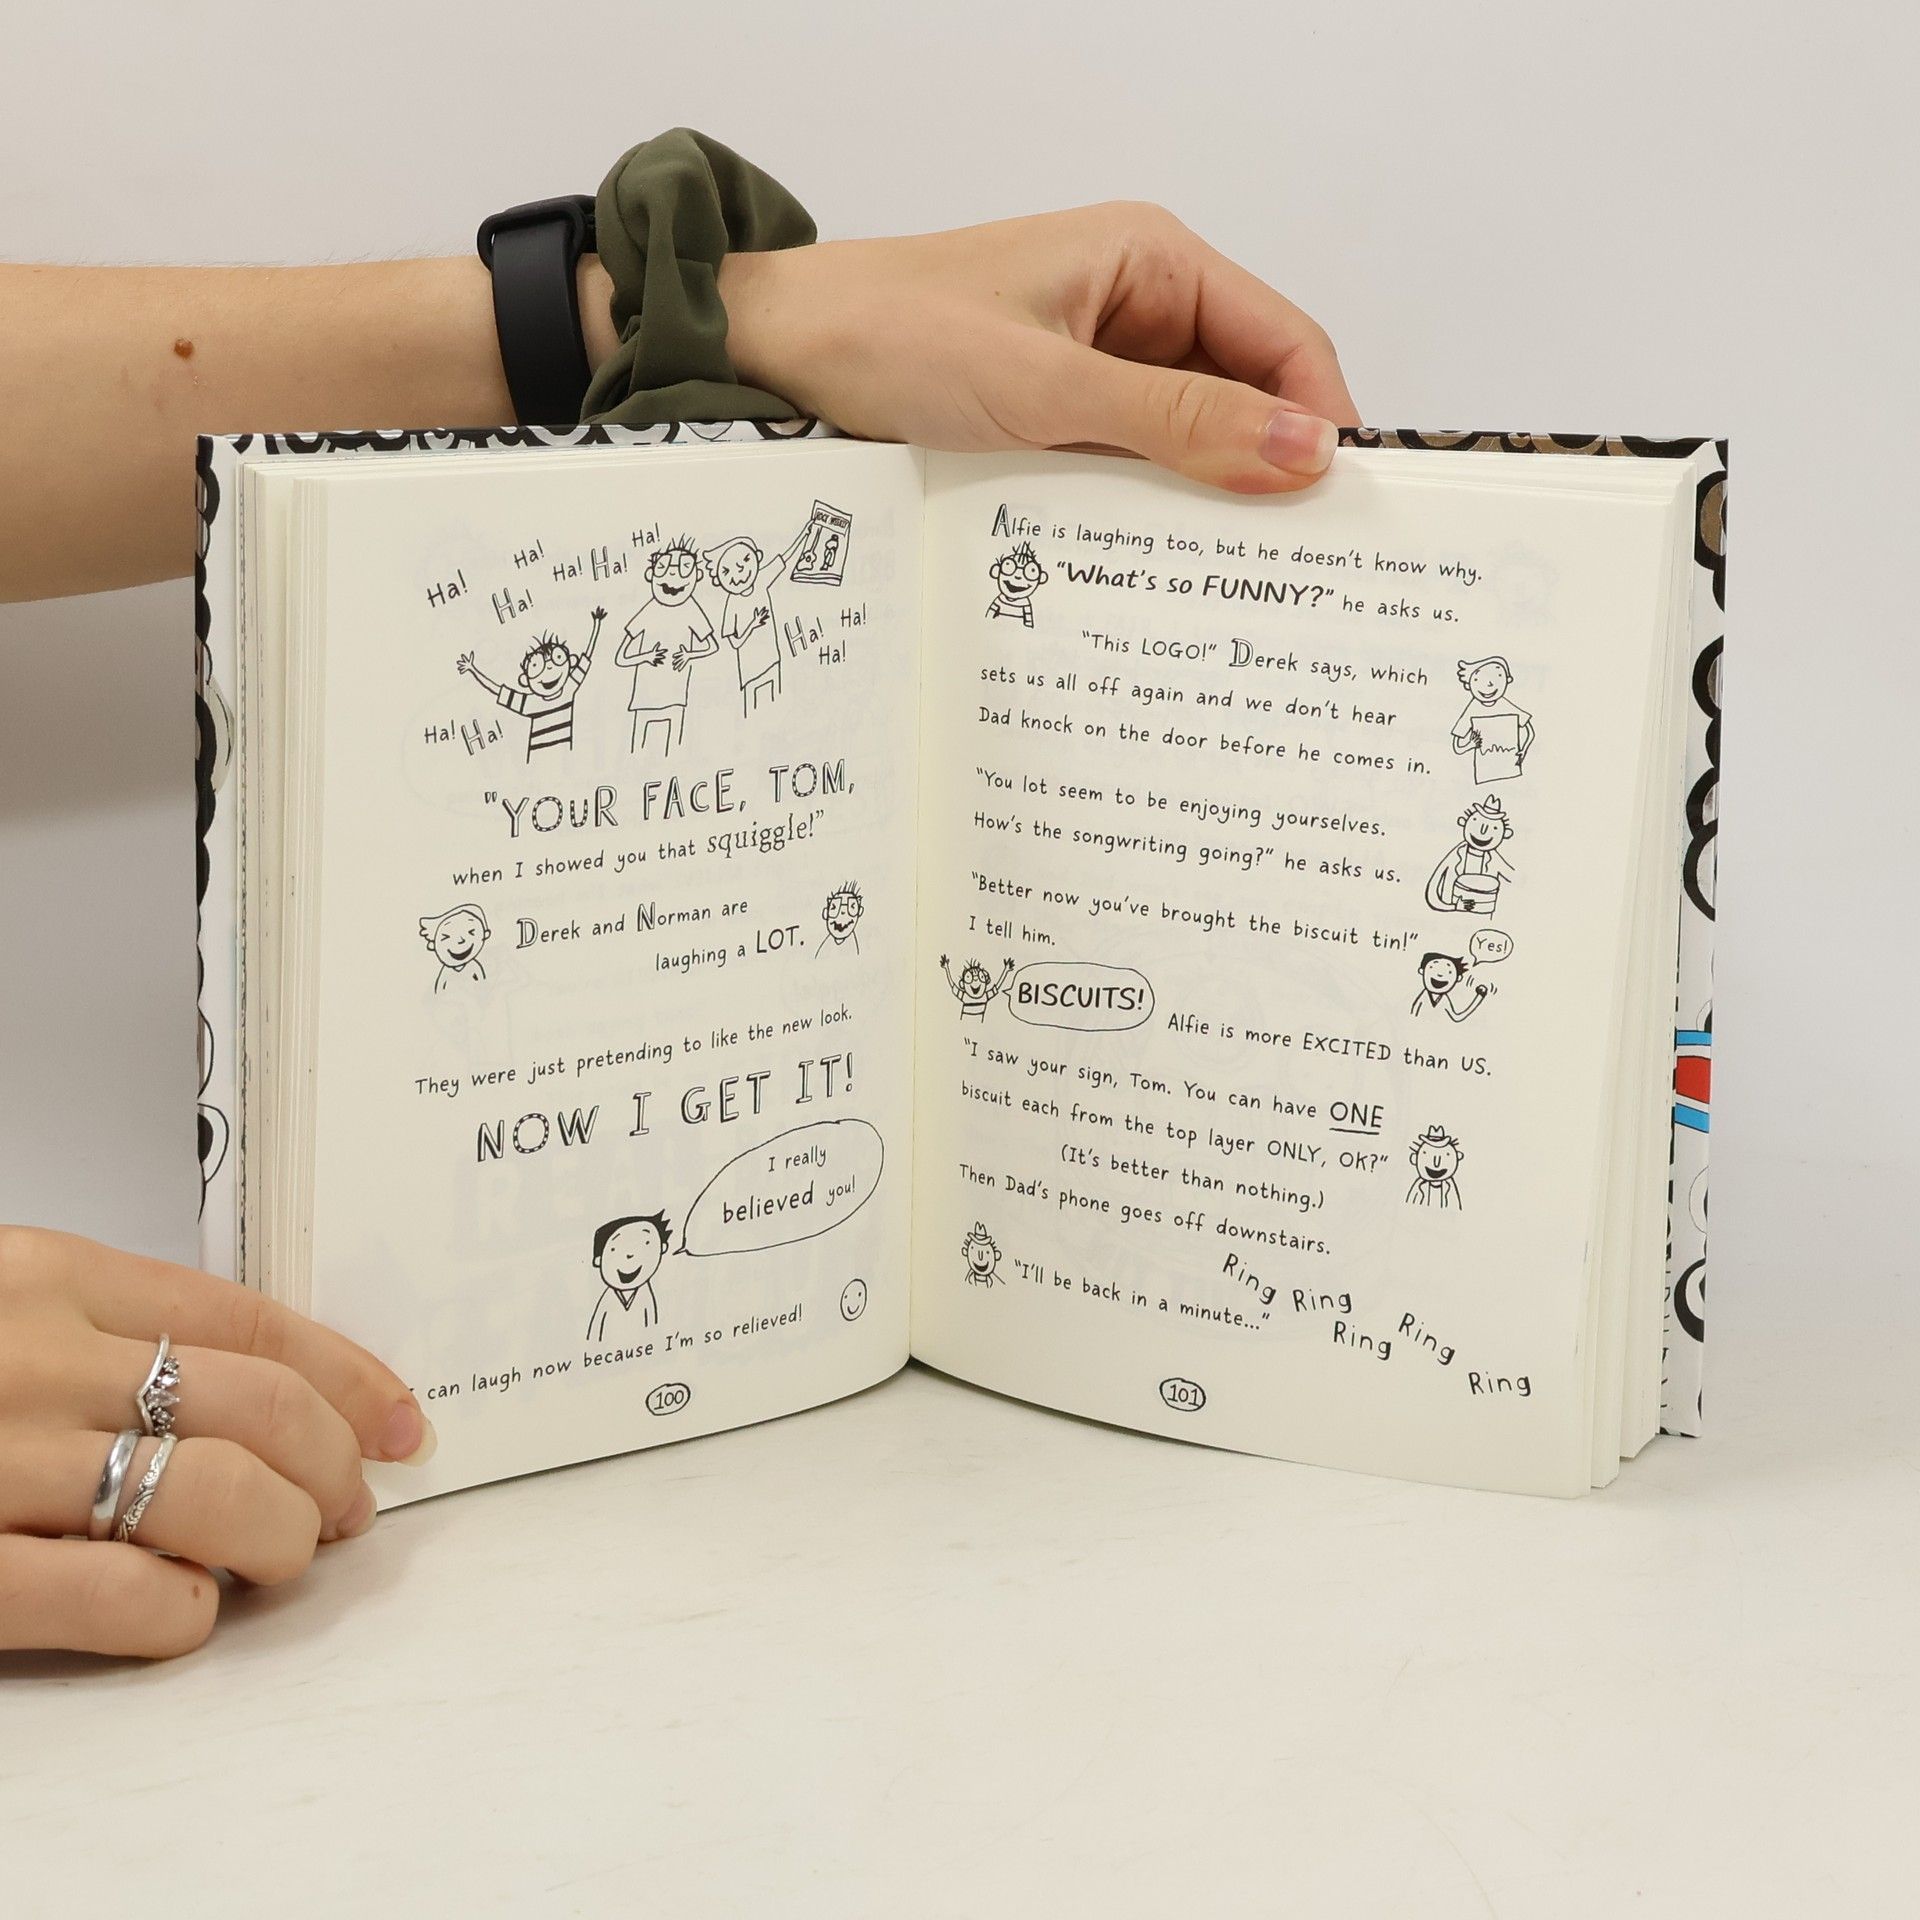 Ha!
Ha!
Ha!
Ha!
Ha!
Ha!
ROCK WEEKLY
Ha!
Ha!
Ha!
Ha!
Ha!
"YOUR FACE, TOM,
when I showed you that squiggle!"
Derek and Norman are
laughing a LOT.
They were just pretending to like the new look.
NOW I GET IT!
I really
believed you!
can laugh now because I'm so relieved!
100
Alfie is laughing too, but he doesn't know why.
"What's so FUNNY?" he asks us.
"This LOGO!" Derek says, which
sets us all off again and we don't hear
Dad knock on the door before he comes in.
"You lot seem to be enjoying yourselves.
How's the songwriting going?" he asks us.
"Better now you've brought the biscuit tin!"
I tell him.
Yes!
BISCUITS!
Alfie is more EXCITED than US.
"I saw your sign, Tom. You can have ONE
biscuit each from the top layer ONLY, OK?"
(It's better than nothing.)
Then Dad's phone goes off downstairs.
"I'll be back in a minute..."
Ring
Ring
Ring
Ring
Ring
101